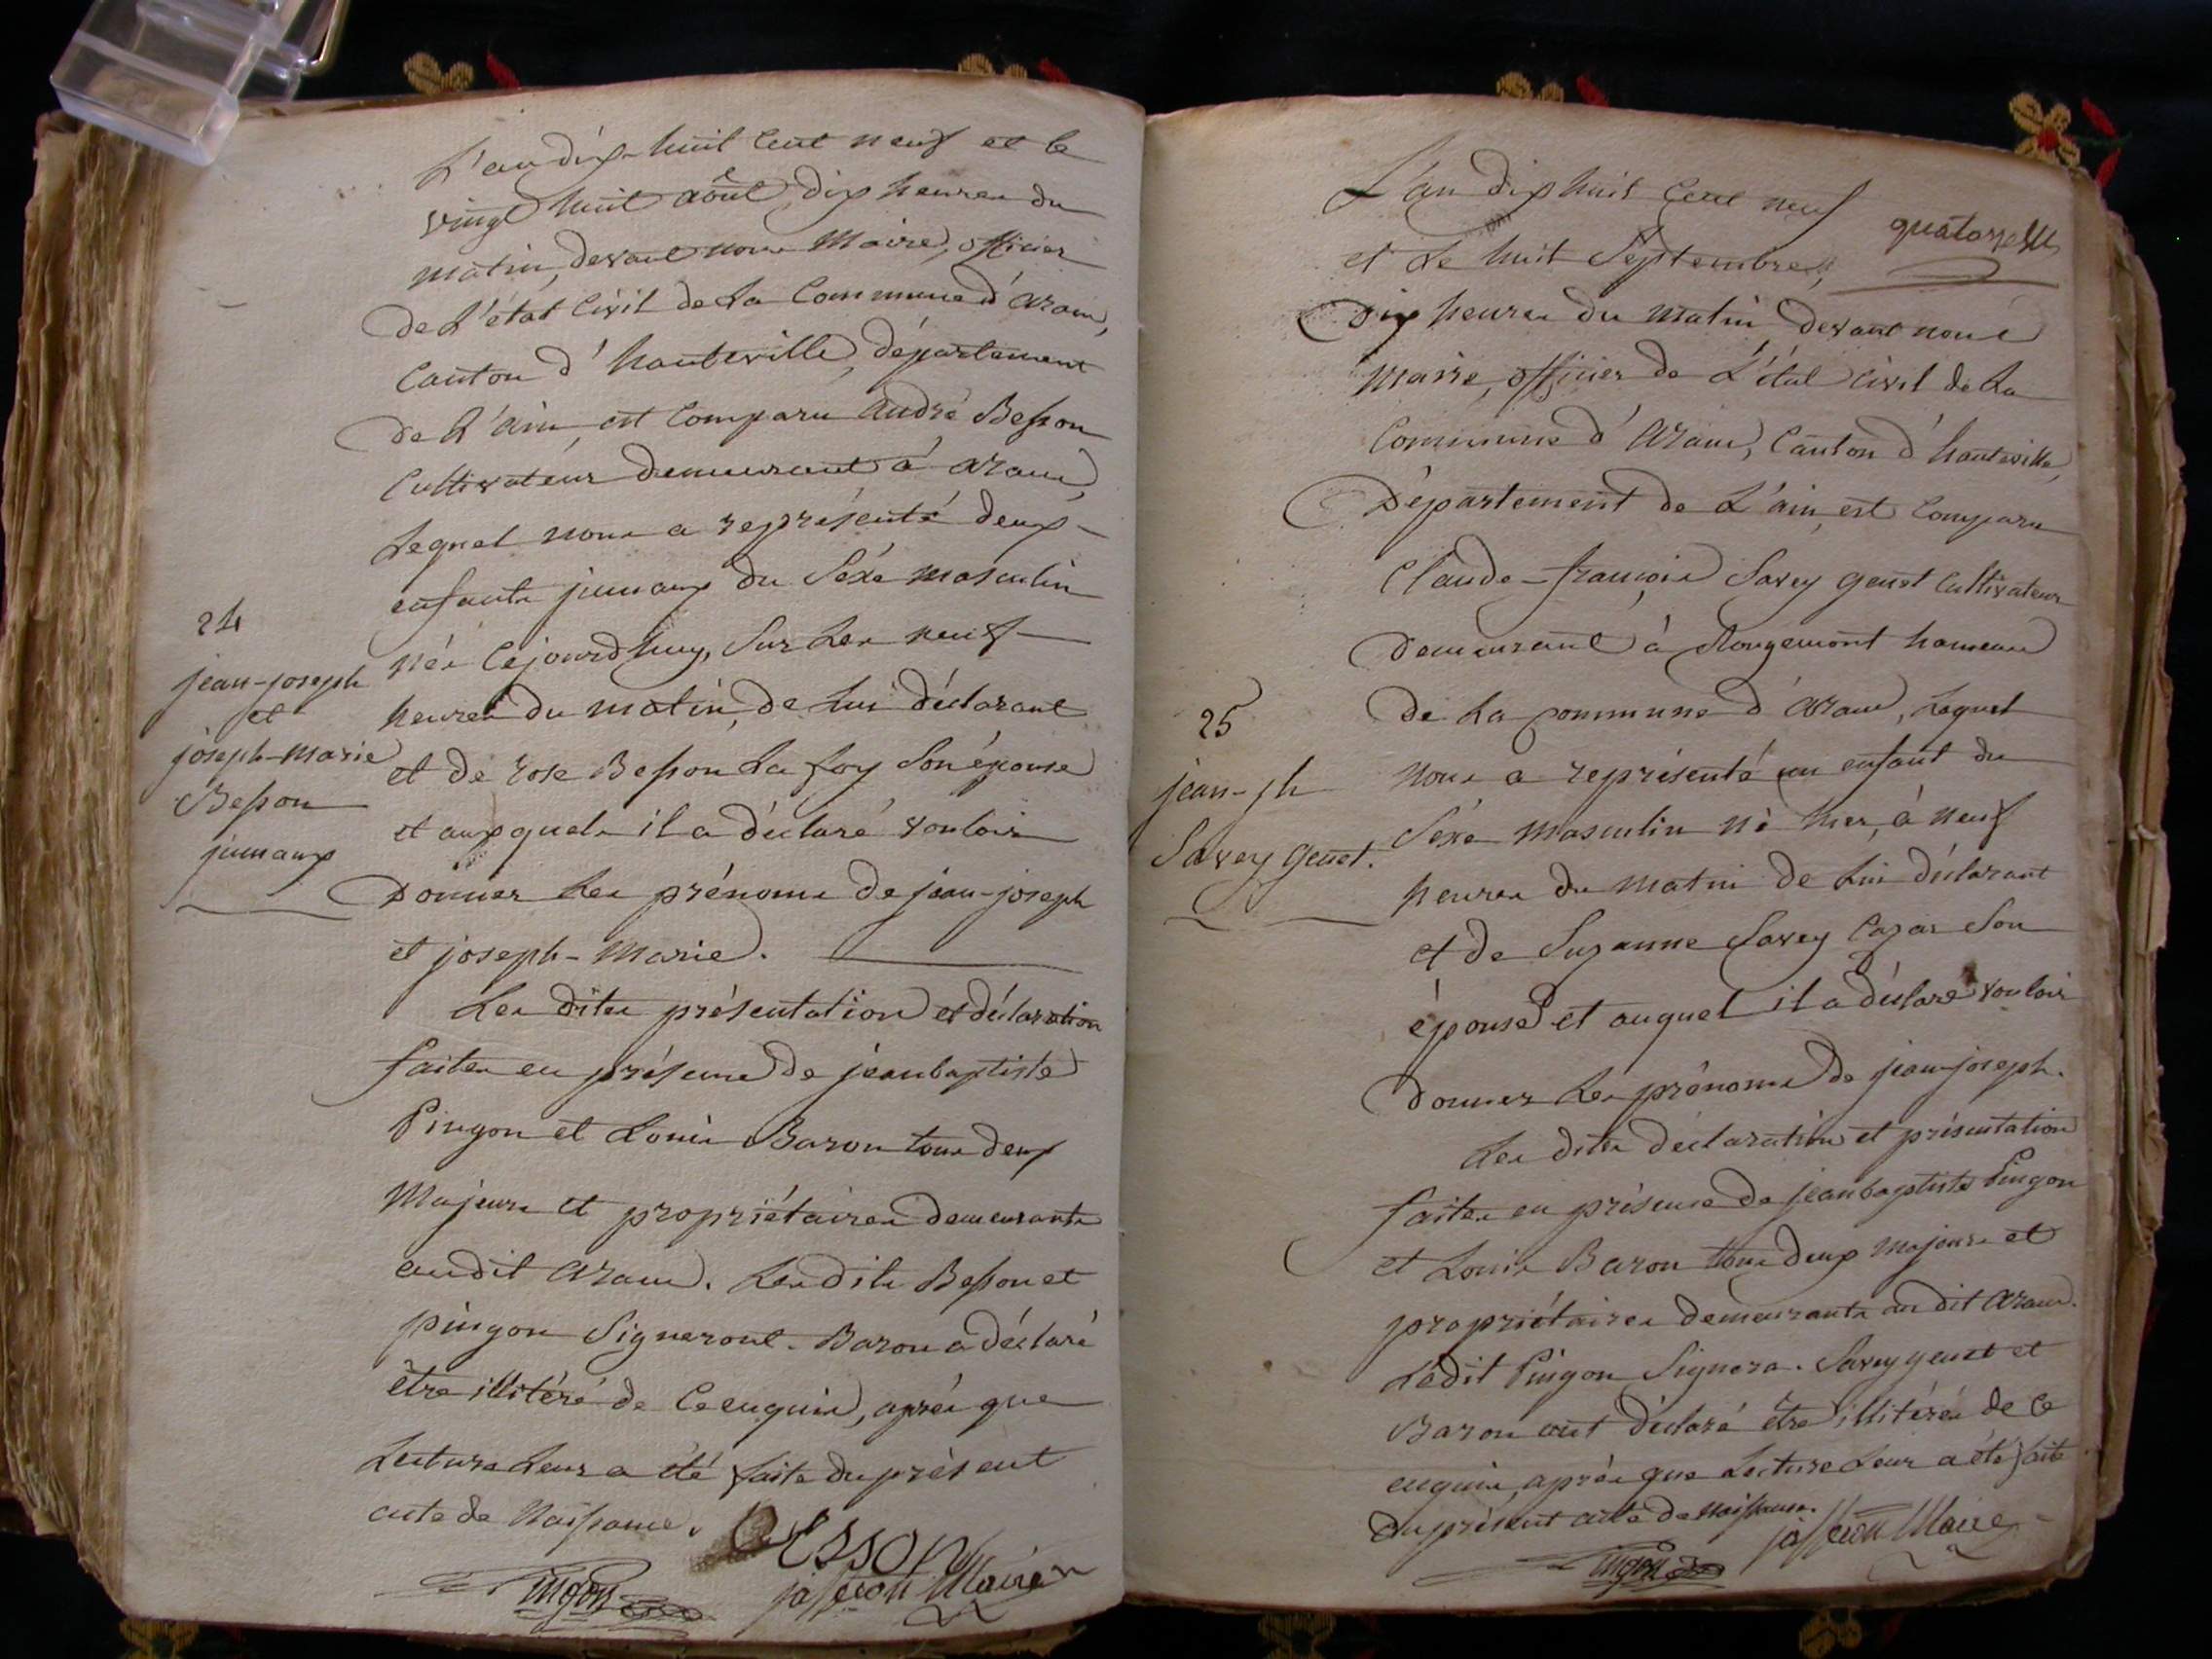 L'an dix-huit cent neuf et le
vingt huit août, dix heures du
matin, devant nous Maire, officier
de L'état Civil de La Commune d'aranc,
Canton d'hauteville, département
de L'ain, est Comparu andré Besson
Cultivateur demeurant à aranc,
Lequel nous a représenté deux
enfants jumaux du Séxe masculin
24
nés Cejourd'huy, Sur Les neuf
jean-joseph
et
joseph-marie
Besson
jumaux
heures du matin, de Lui déclarant
et de rose Besson La foy Son épouse
et auxquels il a déclaré vouloir
Donner Les prénoms de jean-joseph
et joseph-Marie.
Les dites présentation et déclaration
faites en présence de jeanbaptiste
Pingon et Louis Baron tous deux
Majeurs et propriétaires demeurants
audit aranc. Lesdits Besson et
pingon Signeront. Baron a déclaré
être illitéré de Ce enquis, après que
Lecture Leur a été faite du présent
acte de Naissance.
Besson
Pingon
jasseron Maire
L'an dix huit Cent neuf
quatorze
et Le huit Septembre,
Dix heures du matin, devant nous
Maire, officier de L'état civil de La
Commune d'aranc, Canton d'hauteville,
Département de L'ain, est Comparu
Claude-françois Savey genet Cultivateur
Demeurant à Rougemont hameau
de La commune d'aranc, Lequel
25
jean-jh
Savey genet.
Nous a représenté un enfant du
Séxe masculin né hier, à neuf
heures du matin de Lui déclarant
et de Suzanne Savey Cazar Son
épouse et auquel il a déclaré vouloir
Donner Les prénoms de jean-joseph.
Les dites déclaration et présentation
faites en présence de jeanbaptiste Pingon
et Louis Baron tous deux majeurs et
propriétaires demeurants au dit aranc.
Ledit Pingon Signera. Savey genet et
Baron ont déclaré être illitérés de Ce
enquis, après que Lecture Leur a été faite
du présent acte de naissance.
jasseron Maire
Pingon